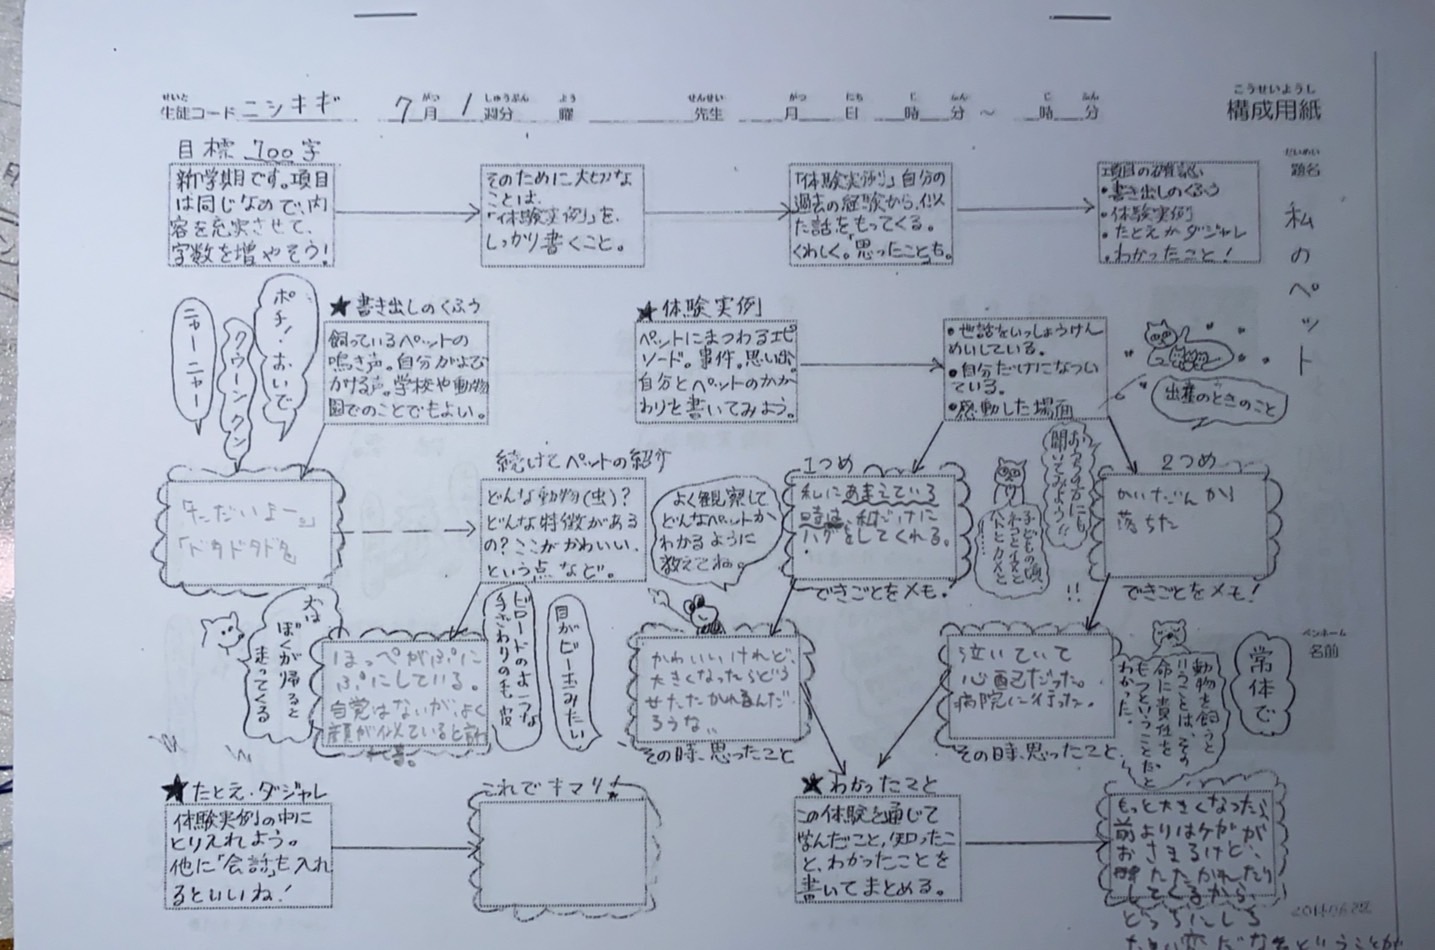 生徒コード ニシキギ 7月 1週分 曜 先生 月 日 時 分 〜 時 分
構成用紙
題名 私のペット
目標 700字
新学期です。項目
は同じなので、内
容を充実させて、
字数を増やそう!
そのために大切な
ことは、
「体験実例」を、
しっかり書くこと。
「体験実例」自分の
過去の経験から、似
た話をもってくる。
くわしく。「思ったこと」も。
項目の確認
・書き出しのくふう
・体験実例
・たとえかダジャレ
・わかったこと!
ニャー ニャー
クウーン クン
ポチ!おいで
★書き出しのくふう
飼っているペットの
鳴き声。自分がよび
かける声。学校や動物
園でのことでもよい。
★体験実例
ペットにまつわるエピ
ソード。事件。思い出。
自分とペットのかか
わりを書いてみよう。
・世話をいっしょうけん
めいしている。
・自分だけになつい
ている。
・感動した場面
出産のときのこと
「ただいまー。」
「ドタドタドタ」
続けてペットの紹介
どんな動物(虫)?
どんな特徴がある
の?ここがかわいい、
という点など。
よく観察して
どんなペットか
わかるように
教えてね。
1つめ
私にあまえている
時は、私だけに
ハグをしてくれる。
できごとをメモ!
おうちの方にも
聞いてみよう!!
子どもの頃、
2つめ
かいだんから
落ちた
できごとをメモ!
犬は
ぼくが帰ると
走ってくる
ほっぺがぷに
ぷにしている。
自覚はないが、よく
顔が似ていると言
ビロードのような
手ざわりの毛皮
目がビー玉みたい
かわいいけれど、
大きくなったらどう
せたたかれるんだ
ろうな。
その時、思ったこと
泣いていて
心配だった。
病院に行った。
その時、思ったこと
動物を飼うと
いうことは、その
命に責任を
もつということだと
わかった。
常体で
ペンネーム
名前
★たとえ・ダジャレ
体験実例の中に
とりいれよう。
他に「会話」も入れ
るといいね!
これでキマリ!
★わかったこと
この体験を通じて
学んだこと、知ったこ
と、わかったことを
書いてまとめる。
もっと大きくなったら、
前よりはケガが
おさまるけど、
たたかれたり
してくるから、
どっちにしろ